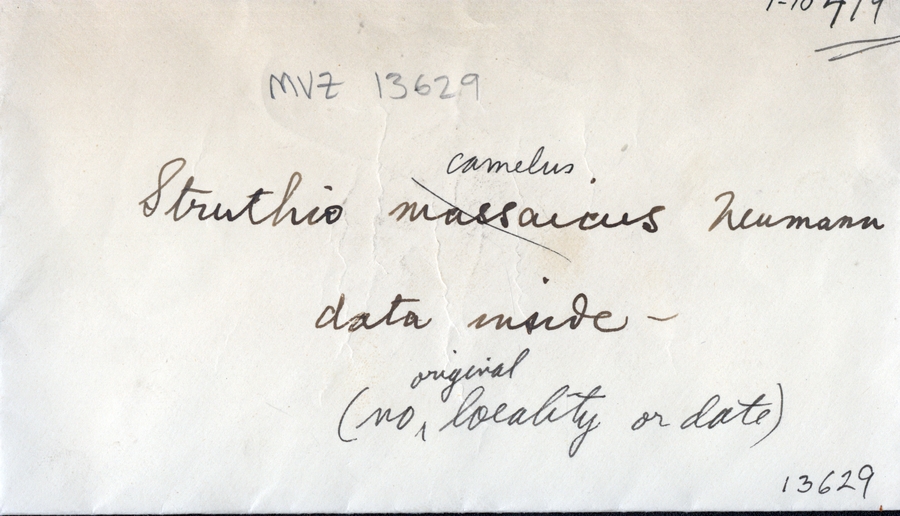 MVZ 13629
camelus.
Struthio massaicus Neumann
data inside -
original
(no, locality or date)
13629